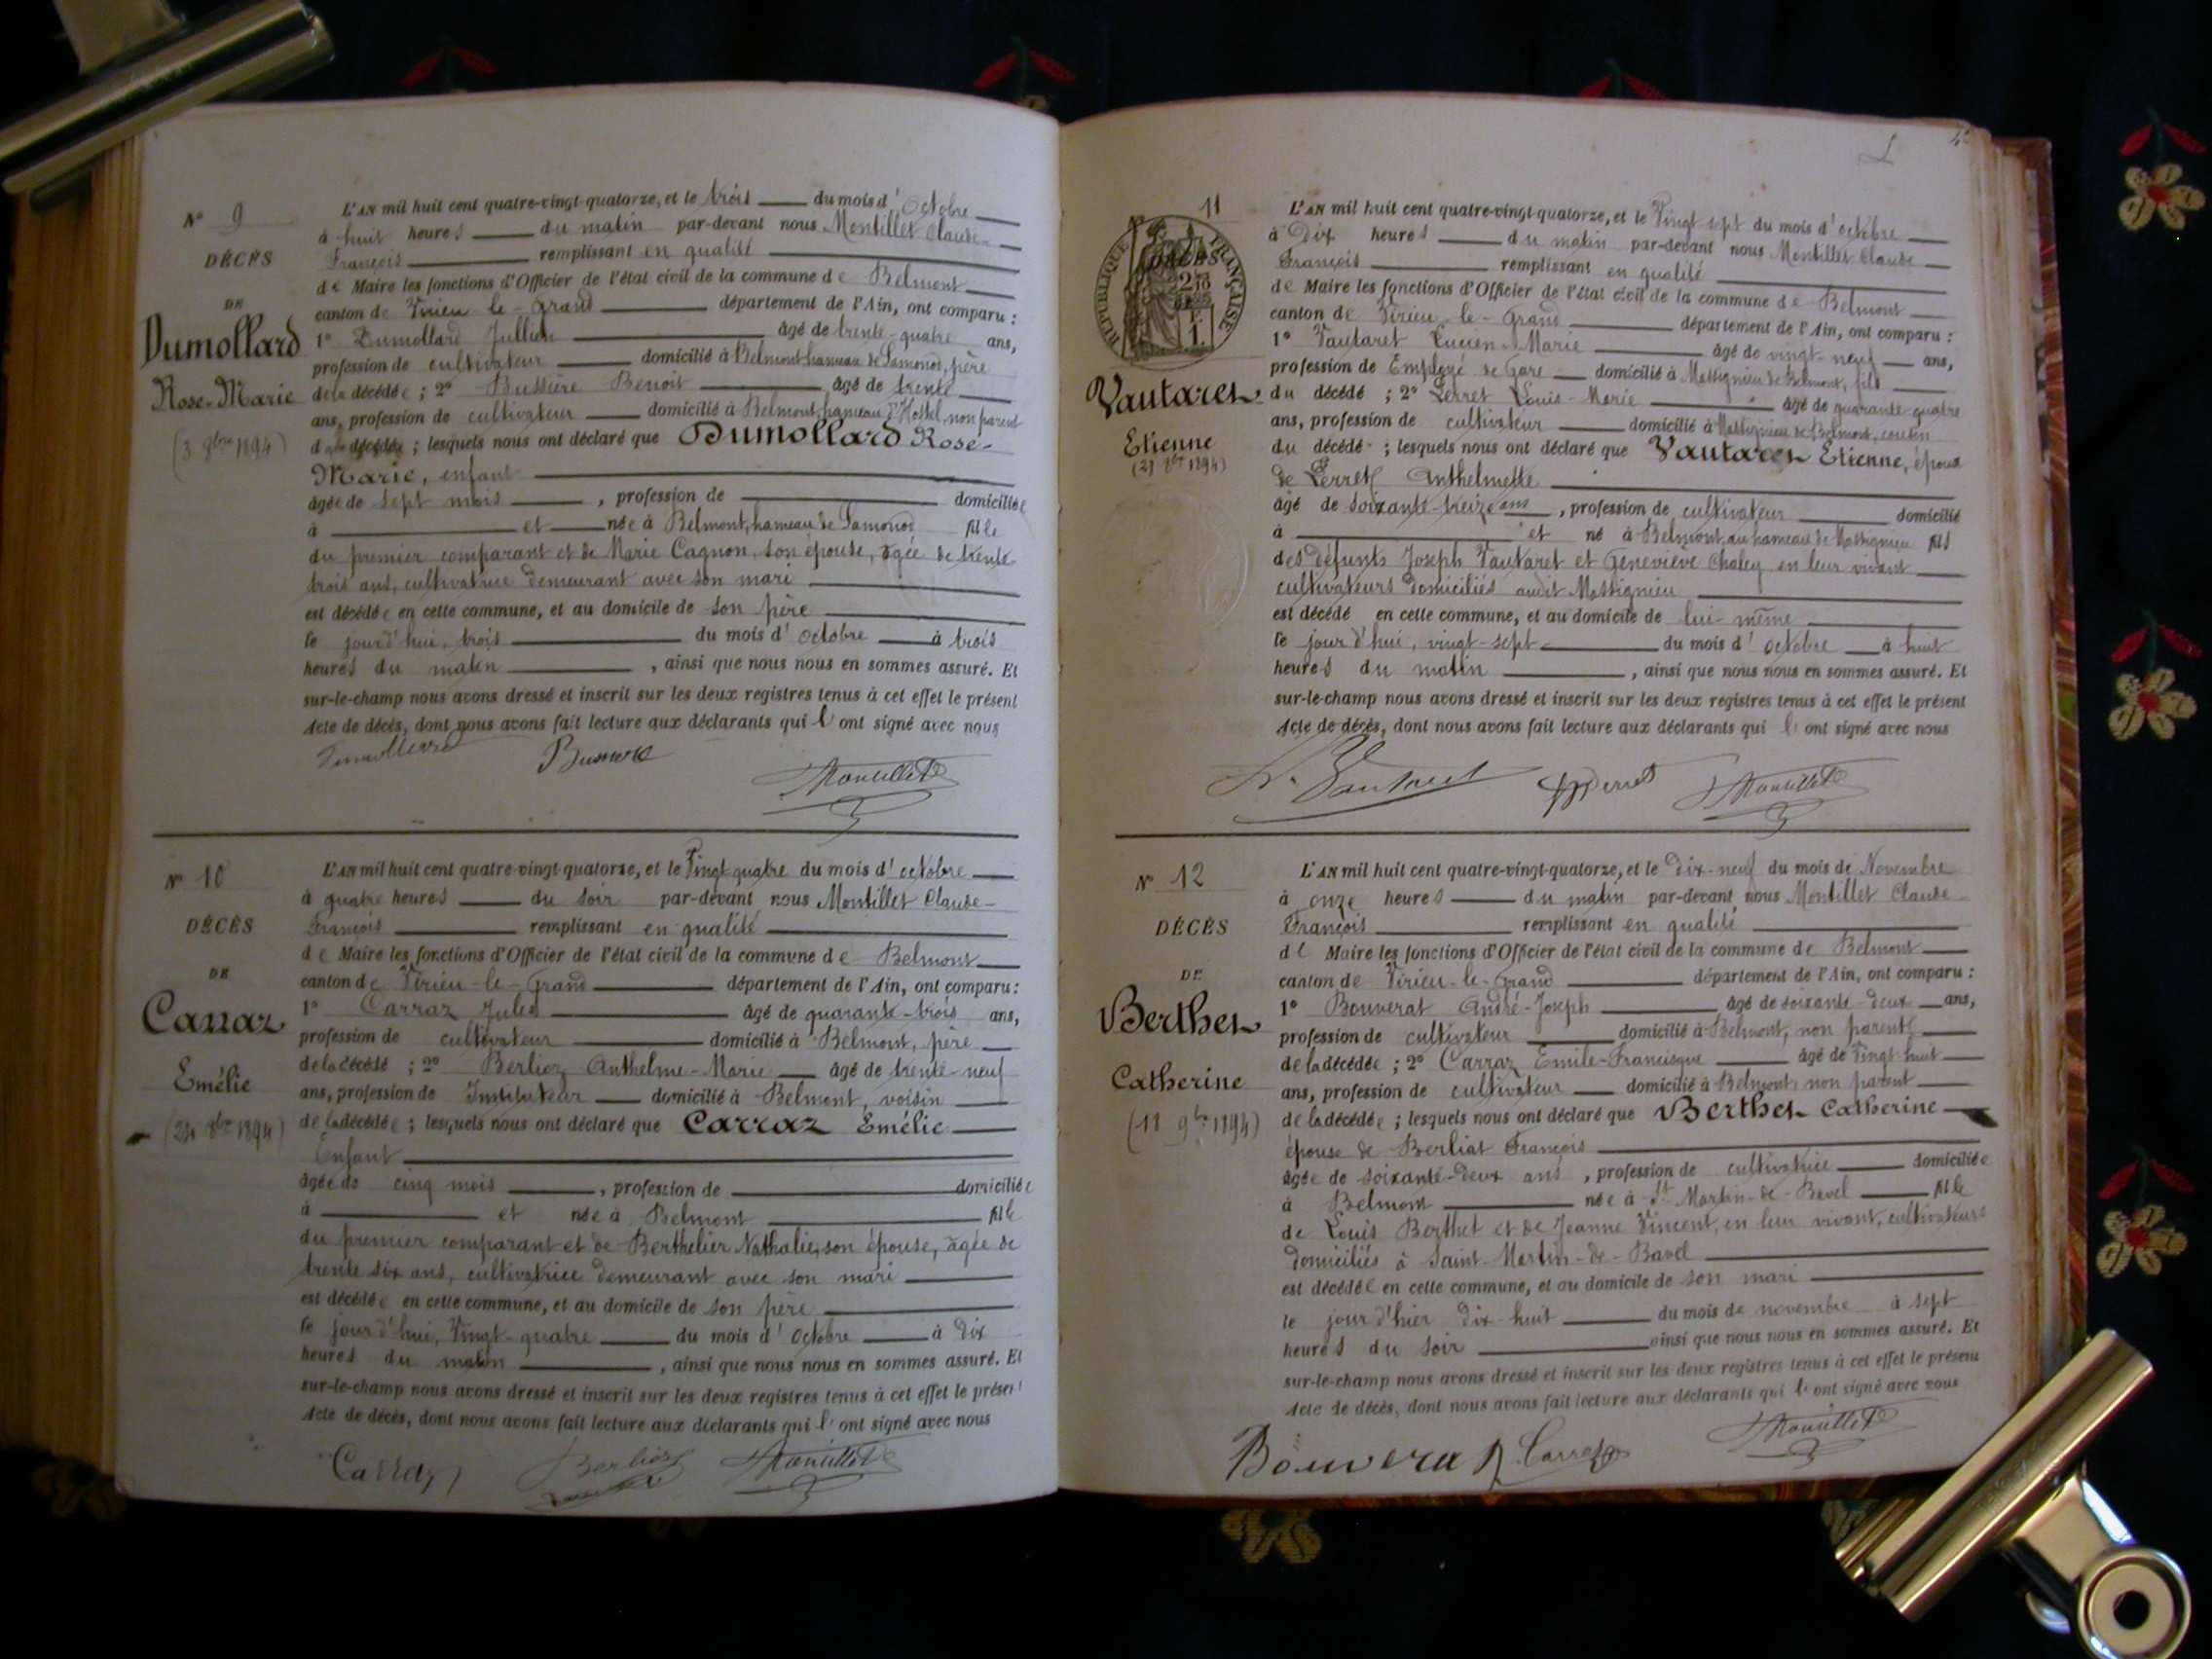 N° 9
DÉCÈS
DE
Dumollard
Rose-Marie
(3 8bre 1894)
L'AN mil huit cent quatre-vingt-quatorze, et le trois du mois d'Octobre
à huit heures du matin par-devant nous Montillet Claude-
François remplissant en qualité
de Maire les fonctions d'Officier de l'état civil de la commune de Belmont
canton de Virieu-le-Grand département de l'Ain, ont comparu :
1° Dumollard Jullien âgé de trente-quatre ans,
profession de cultivateur domicilié à Belmont hameau de Samonod, père
de la décédée ; 2° Bussière Benoit âgé de trente
ans, profession de cultivateur domicilié à Belmont, hameau d'Hostel, non parent
de la décédée ; lesquels nous ont déclaré que Dumollard Rose-
Marie, enfant
âgée de sept mois , profession de domiciliée
à et née à Belmont, hameau de Samonod fille
du premier comparant et de Marie Cagnon, son épouse, âgée de trente
trois ans, cultivatrice demeurant avec son mari
est décédée en cette commune, et au domicile de son père
le jourd'hui, trois du mois d'octobre à trois
heures du matin , ainsi que nous nous en sommes assuré. Et
sur-le-champ nous avons dressé et inscrit sur les deux registres tenus à cet effet le présent
Acte de décès, dont nous avons fait lecture aux déclarants qui l'ont signé avec nous
Bussière Montillet
N° 10
DÉCÈS
DE
Carraz
Emélie
(24 8bre 1894)
L'AN mil huit cent quatre-vingt-quatorze, et le Vingt quatre du mois d'octobre
à quatre heures du soir par-devant nous Montillet Claude-
François remplissant en qualité
de Maire les fonctions d'Officier de l'état civil de la commune de Belmont
canton de Virieu-le-Grand département de l'Ain, ont comparu :
1° Carraz Jules âgé de quarante-trois ans,
profession de cultivateur domicilié à Belmont, père
de la décédé ; 2° Berlioz Anthelme-Marie âgé de trente-neuf
ans, profession de Instituteur domicilié à Belmont, voisin
de la décédée ; lesquels nous ont déclaré que Carraz Emélie
Enfant
âgée de cinq mois , profession de domiciliée
à et née à Belmont fille
du premier comparant et de Berthelier Nathalie, son épouse, âgée de
trente six ans, cultivatrice demeurant avec son mari
est décédée en cette commune, et au domicile de son père
le jourd'hui, Vingt-quatre du mois d'octobre à dix
heures du matin , ainsi que nous nous en sommes assuré. Et
sur-le-champ nous avons dressé et inscrit sur les deux registres tenus à cet effet le présent
Acte de décès, dont nous avons fait lecture aux déclarants qui l'ont signé avec nous
Carraz Berlioz Montillet
11
RÉPUBLIQUE FRANÇAISE
Vautaret
Etienne
L'AN mil huit cent quatre-vingt-quatorze, et le Vingt sept du mois d'octobre
à Dix heures du matin par-devant nous Montillet Claude
François remplissant en qualité
de Maire les fonctions d'Officier de l'état civil de la commune de Belmont
canton de Virieu-le-Grand département de l'Ain, ont comparu :
1° Vautaret Lucien-Marie âgé de vingt-neuf ans,
profession de Employé de Gare domicilié à Massignieu de Belmont, fils
du décédé ; 2° Perret Louis-Marie âgé de quarante quatre
ans, profession de cultivateur domicilié à Massignieu de Belmont, cousin
du décédé ; lesquels nous ont déclaré que Vautaret Etienne, époux
de Perret Anthelmette
âgé de soixante-treize ans , profession de cultivateur domicilié
à et né à Belmont, au hameau de Massignieu fils
des défunts Joseph Vautaret et Geneviève Chaley en leur vivant
cultivateurs domiciliés audit Massignieu
est décédé en cette commune, et au domicile de lui-même
le jourd'hui, vingt-sept du mois d'octobre à huit
heures du matin , ainsi que nous nous en sommes assuré. Et
sur-le-champ nous avons dressé et inscrit sur les deux registres tenus à cet effet le présent
Acte de décès, dont nous avons fait lecture aux déclarants qui l'ont signé avec nous
Vautaret Perret Montillet
N° 12
DÉCÈS
DE
Berthet
Catherine
L'AN mil huit cent quatre-vingt-quatorze, et le dix-neuf du mois de Novembre
à onze heures du matin par-devant nous Montillet Claude-
François remplissant en qualité
de Maire les fonctions d'Officier de l'état civil de la commune de Belmont
canton de Virieu-le-Grand département de l'Ain, ont comparu :
1° Bouverat André-Joseph âgé de soixante-deux ans,
profession de cultivateur domicilié à Belmont, non parent
de la décédée ; 2° Carraz Emile-Francisque âgé de Vingt-huit
ans, profession de cultivateur domicilié à Belmont, non parent
de la décédée ; lesquels nous ont déclaré que Berthet Catherine
épouse de Berliat François
âgée de soixante-deux ans , profession de cultivatrice domiciliée
à Belmont née à St Martin-de-Bavel fille
de Louis Berthet et de Jeanne Vincent, en leur vivant, cultivateurs
domiciliés à Saint-Martin-de-Bavel
est décédée en cette commune, et au domicile de son mari
le jour d'hier dix-huit du mois de novembre à sept
heures du soir ainsi que nous nous en sommes assuré. Et
sur-le-champ nous avons dressé et inscrit sur les deux registres tenus à cet effet le présent
Acte de décès, dont nous avons fait lecture aux déclarants qui l'ont signé avec nous
Bouverat Carraz Montillet